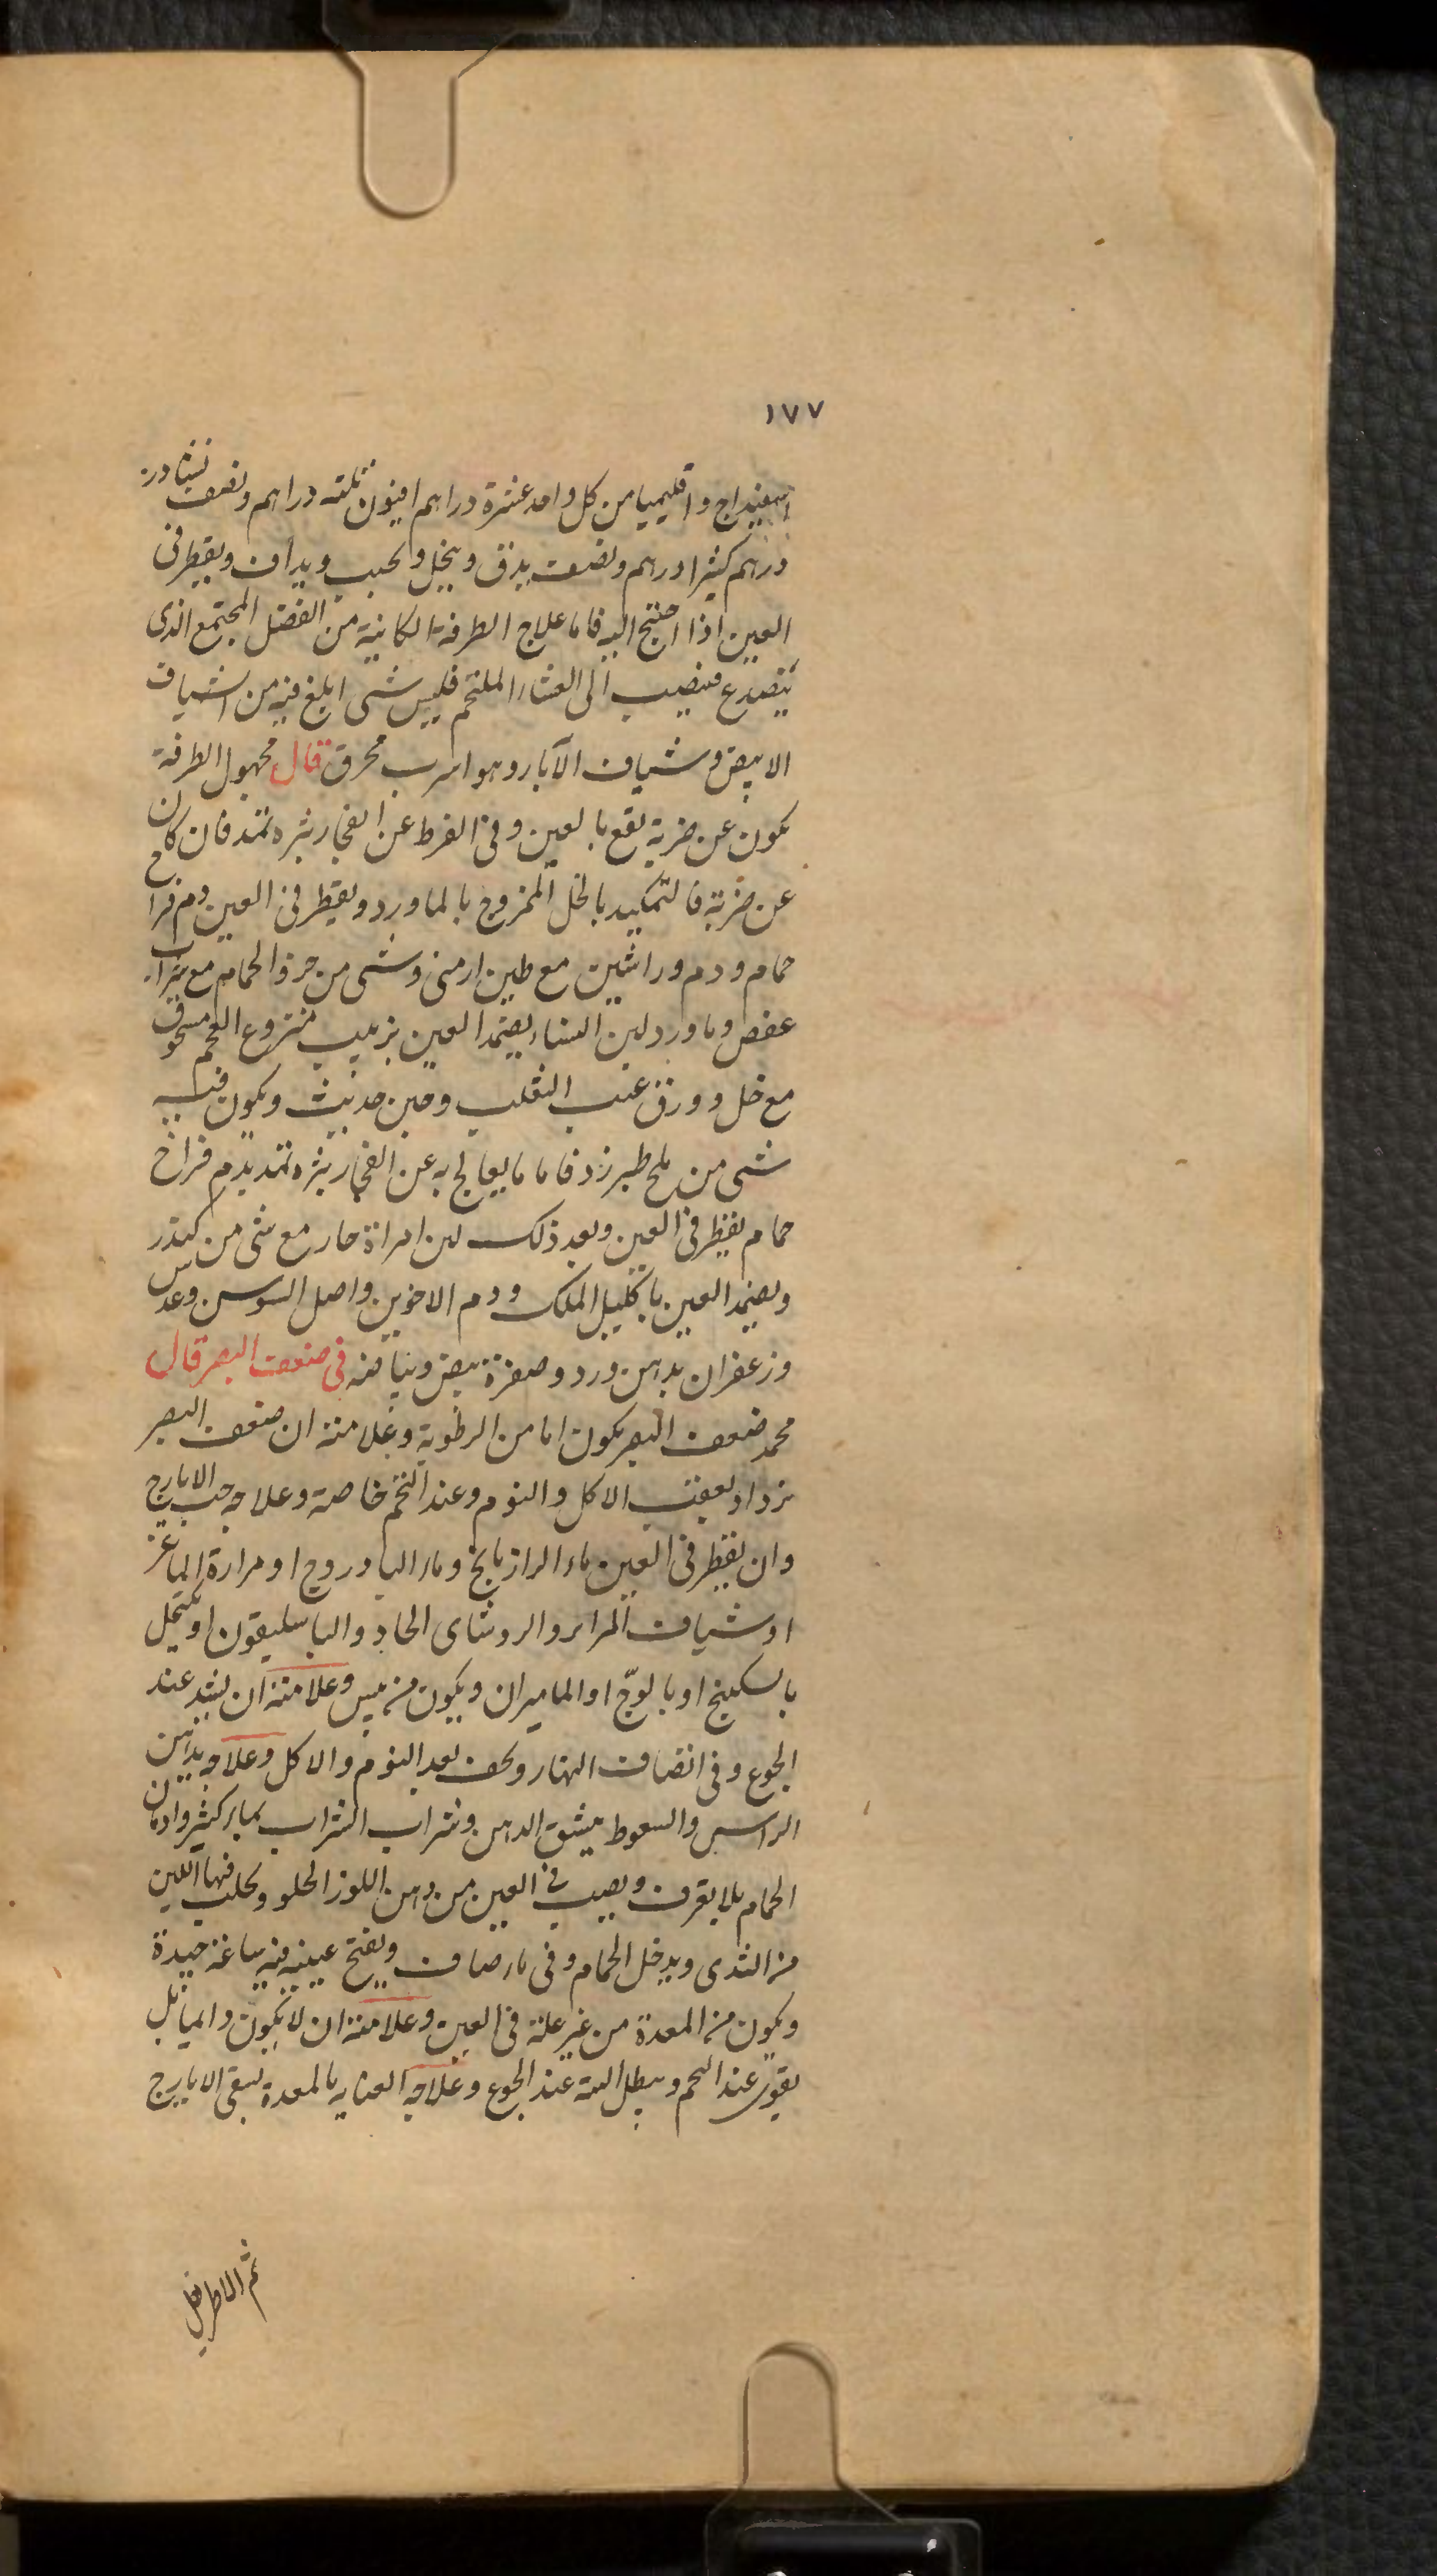 ١٧٧
اسفيداج واقليميا من كل واحد عشرة دراهم افيون ثلثة دراهم ونصف نشادر
درهم كثيرا درهم ونصف يدق وينخل ويحبب ويداف ويقطر في
العين اذا احتيج اليه فاما علاج الطرفة الكائنة من الفضل المجتمع الذى
يتصدع فينصب الى الغشاء الملتحم فليس شى ابلغ فيه من اشياف
الابيض وشياف الآبار وهو اسرب محرق قال مجهول الطرفة
يكون عن ضربة تقع بالعين وفى الفرط عن انفجار بثره تمتد فان كان
عن ضربة فالتكميد بالخل الممزوج بالماورد ويقطر فى العين دم فراخ
حمام ودم وراشين مع طين ارمنى وشى من خرو الحمام مع شراب
عفص وماورد لبن النساء يضمد العين بزبيب منزوع العجم مسحوق
مع خل وورق عنب الثعلب وجبن حديث ويكون فيه
شى من ملح طبرزد فاما ما يعالج به عن انفجار بثره تمتد بدم فراخ
حمام يقطر فى العين وبعد ذلك لبن امراة حار مع شى من كندر
ويضمد العين باكليل الملك ودم الاخوين واصل السوسن وعدس
وزعفران بدهن ورد وصفرة بيض وبياضه فى ضعف البصر قال
محمد ضعف البصر يكون اما من الرطوبة وعلامته ان ضعف البصر
يزداد بعقب الاكل والنوم وعند التخم خاصة وعلاجه حب الايارج
وان يقطر فى العين ماء الرازيانج وماء البادروج او مرارة الماعز
او شياف المراير والروشناى الحاد والباسليقون او يكتحل
بالسكبينج او بالوجّ او الماميران ويكون من يبس وعلامته ان يشتد عند
الجوع وفى انتصاف النهار ويخف بعد النوم والاكل وعلاجه بدهن
الراس والسعوط ينشق الدهن وشراب الشراب بماء كثير وادمان
الحمام بلا يعرف ويصب فى العين من دهن اللوز الحلو ويحلب فيها اللبن
من الثدى ويدخل الحمام وفى ماء صاف ويفتح عينيه فيه ساعة جيدة
ويكون من المعدة من غير علة فى العين وعلامته ان لا يكون دائما بل
يقوى عند التخم ويبطل البتة عند الجوع وعلاجه العنايه بالمعدة بسقى الايارج
ثم الاطريفل